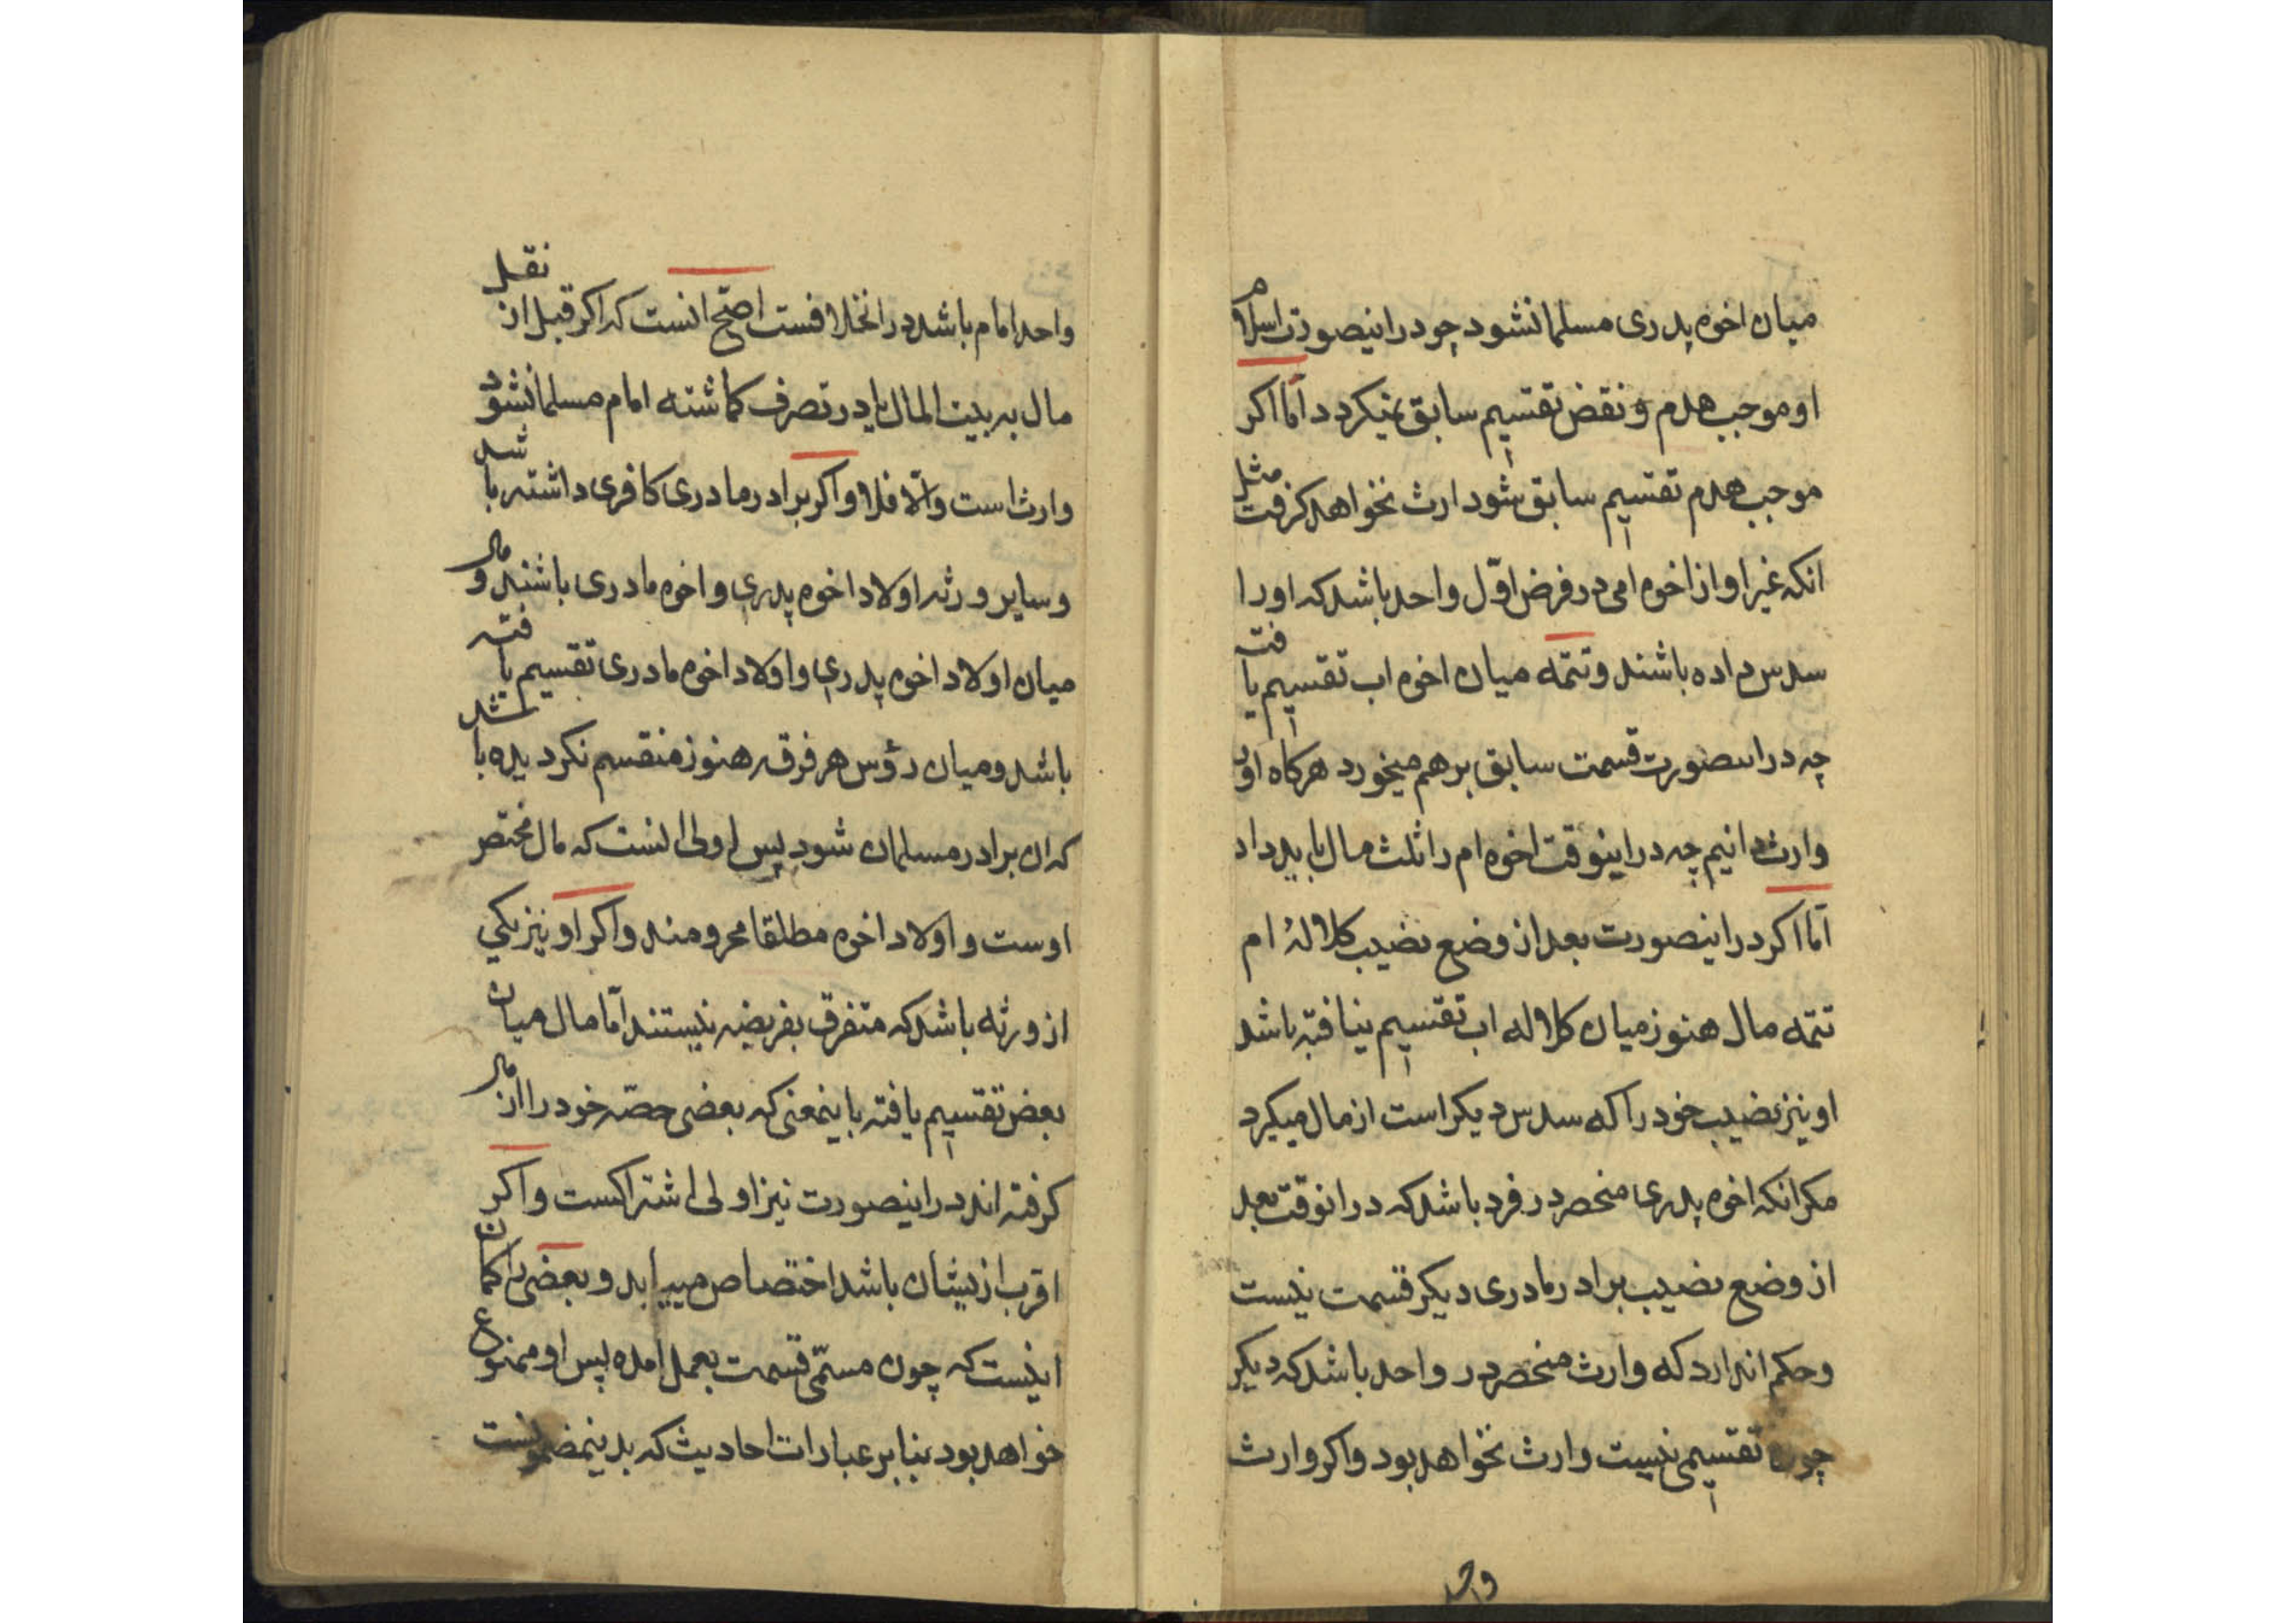 میان اخوه پدری مسلمانشود چو در اینصورت اسلام
او موجب هدم و نقض تقسیم سابق نمیکردد اما اکر
موجب هدم تقسیم سابق شود ارث نخواهد کرفت مثل
انکه غیر او از اخوه امی در فرض اوّل واحد باشد که اورا
سدس داده باشند و تتمّه میان اخوه اب تقسیم یافته
چه در اینصورت قسمت سابق برهم میخورد هرکاه اورا
وارث دانیم چه در اینوقت اخوه ام را ثلث مال باید داد
امّا اکر در اینصورت بعد از وضع نصیب کلالۀ ام
تتمّه مال هنوز میان کلاله اب تقسیم نیافته باشد
او نیز نصیب خود را که سدس دیکر است از مال میکیرد
مکر انکه اخوه پدری منحصر در فرد باشد که در انوقت بعد
از وضع نصیب برادر مادری دیکر قسمت نیست
و حکم اندارد که وارث منحصر در واحد باشد که دیکر
چون تقسیمی نیست وارث نخواهد بود و اکر وارث
واحد
واحد امام باشد در انخلافست اصحّ انست که اکر قبل از نقل
مال به بیت المال یا در تصرف کماشته امام مسلمانشود
وارث است والّا فلا و اکر برادر مادری کافری داشته باشد
و سایر ورثه اولاد اخوه پدری و اخوه مادری باشند و مال
میان اولاد اخوه پدری و اولاد اخوه مادری تقسیم یافته
باشد و میان رؤس هر فرقه هنوز منقسم نکردیده باشد
که ان برادر مسلمان شود پس اولی انست که مال مختص
اوست و اولاد اخوه مطلقا محرومند و اکر او نیز یکی
از ورثه باشد که متفرق بفریضه نیستند امّا مال میان
بعض تقسیم یافته باینمعنی که بعضی حصّه خود را از مال
کرفته اند در اینصورت نیز اولی اشتراکست و اکر
اقرب ازیشان باشد اختصاص مییابد و بعضی را کمان
اینست که چون مسمّی قسمت بعمل امده پس او ممنوع
خواهد بود بنابر عبارات احادیث که بدینمضمونست